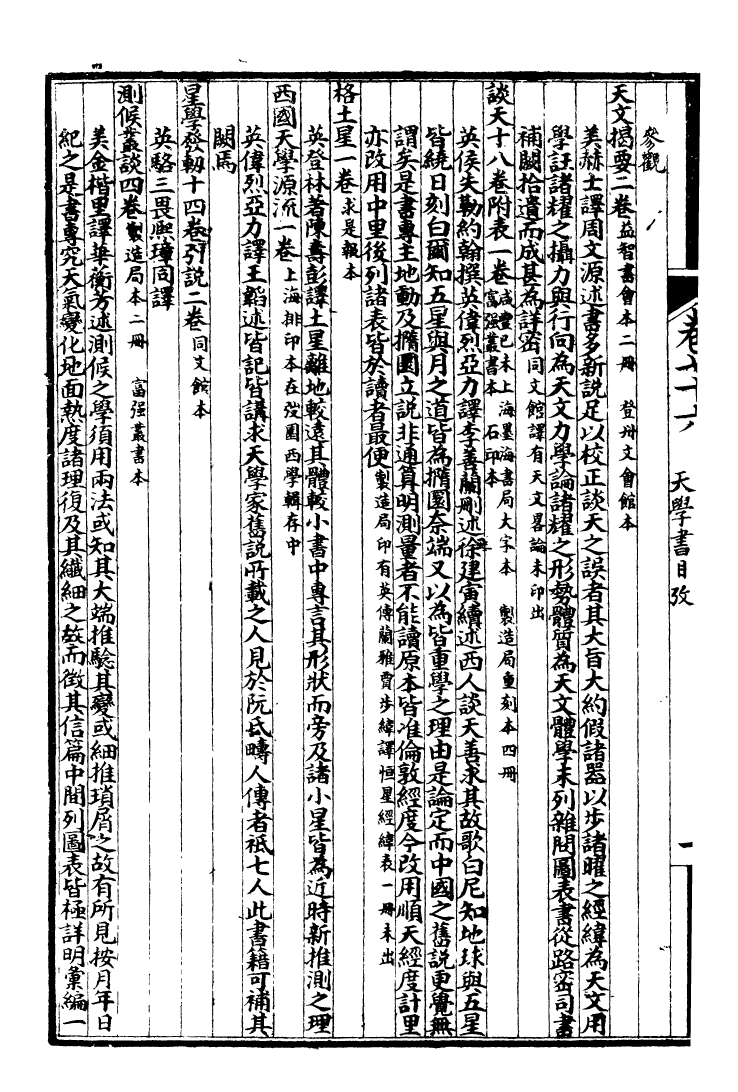 卷七十六 天學書目攷 一
參觀
天文揭要二卷 益智書會本二冊 登州文會館本
美赫士譯周文源述書多新說足以校正談天之誤者其大旨大約假諸器以步諸曜之經緯為天文用
學註諸耀之攝力與行向為天文力學論諸耀之形勢體質為天文體學末列雜問圖表書從路密司書
補闕拾遺而成甚為詳密 同文館譯有天文畧論未印出
談天十八卷附表一卷 咸豐己未上海墨海書局大字本 製造局重刻本四冊 富强叢書本 石印本
英侯失勒約翰撰英偉烈亞力譯李善蘭刪述徐建寅續述西人談天善求其故歌白尼知地球與五星
皆繞日刻白爾知五星與月之道皆為撱圜奈端又以為皆重學之理由是論定而中國之舊說更覺無
謂矣是書專主地動及撱圜立說非通算明測量者不能讀原本皆准倫敦經度今改用順天經度計里
亦改用中里後列諸表皆於讀者最便 製造局印有英傅蘭雅賈步緯譯恒星經緯表一冊未出
格土星一卷 求是報本
英登林著陳壽彭譯土星離地較遠其體較小書中專言其形狀而旁及諸小星皆為近時新推測之理
西國天學源流一卷 上海排印本在弢園西學輯存中
英偉烈亞力譯王韜述皆記皆講求天學家舊說所載之人見於阮氏疇人傳者祗七人此書籍可補其
闕焉
星學發軔十四卷引說二卷 同文館本
英駱三畏熙璋同譯
測候叢談四卷 製造局本二冊 富强叢書本
美金楷里譯華衡芳述測候之學須用兩法或知其大端推驗其變或細推瑣屑之故有所見按月年日
紀之是書專究天氣變化地面熱度諸理復及其纖細之故而徵其信篇中間列圖表皆極詳明彙編一